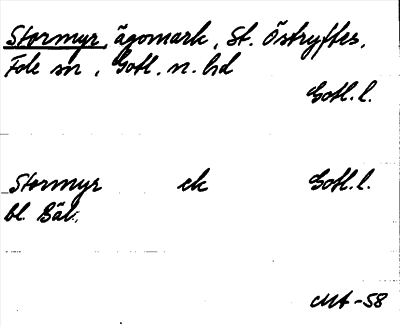 Stormyr, ägomark, St. Östryftes,
Fole sn, Gotl. n. hd
Gotl. l.
Stormyr ek Gotl. l.
bl. Bäl.
MA-58